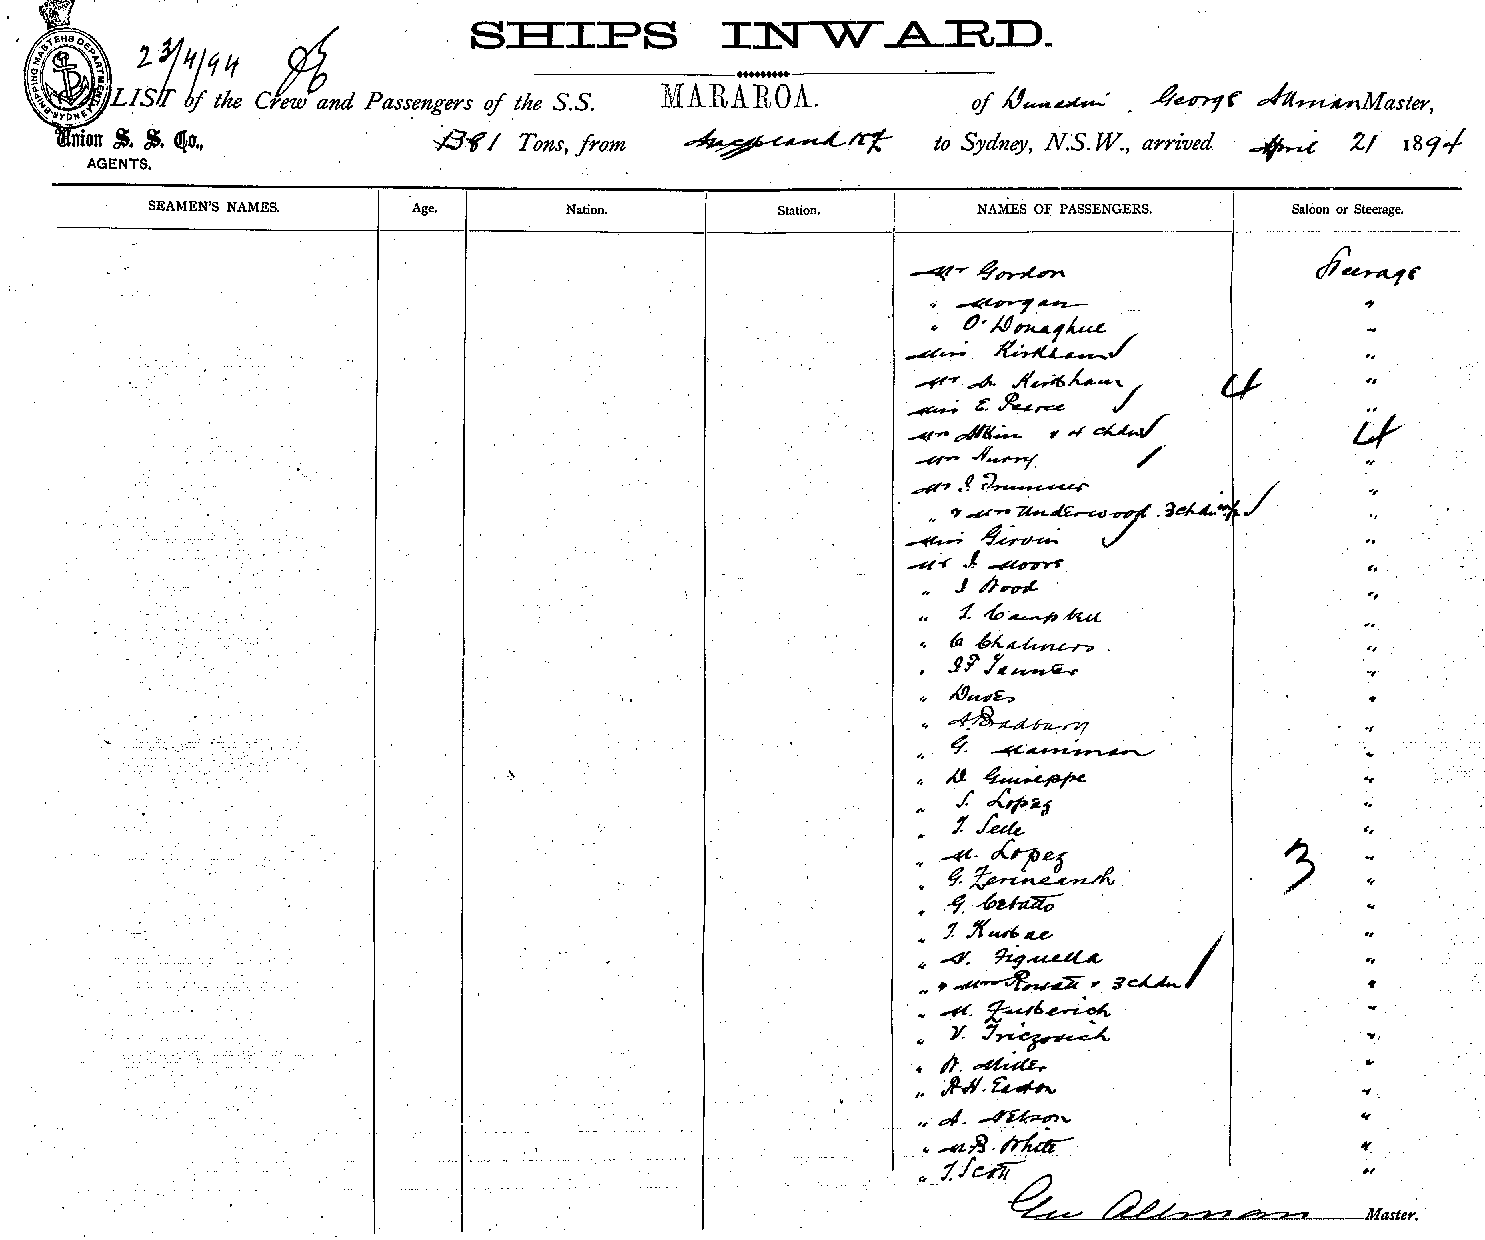 SHIPS INWARD.
SHIPPING MASTERS DEPARTMENT SYDNEY
23/4/94
LIST of the Crew and Passengers of the S.S. MARAROA. of Dunedin, George Allman Master,
Union S. S. Co., 1381 Tons, from Auckland NZ to Sydney, N.S.W., arrived April 21 1894
AGENTS.
SEAMEN'S NAMES. Age. Nation. Station. NAMES OF PASSENGERS. Saloon or Steerage.
Mr Gordon Steerage
" Morgan "
" O'Donaghue "
Miss Kirkham "
Mr A. Kirkham 4 "
Miss E. Pearce "
Mrs Atkin & 4 chdn 4
Mrs Hurry "
Mr J. Trummer "
" & Mrs Underwood 3 chd "
Miss Girvin "
Mr J. Moore "
" J Wood "
" J. Campbell "
" C Chalmers "
" J F Taunter "
" Duves "
" A. Bradbury "
" G. Marriman "
" D Guiseppe "
" S. Lopez "
" T. Sede "
" M. Lopez 3 "
" G. "
" G. Cebatto "
" T. "
" N. Figuella "
" & Mrs Rowatt & 3 chdn "
" M. Zuberich "
" V. Triczovich "
" W. Miller "
" R H. Easton "
" A. Nelson "
" M. B. White "
" T. Scott "
Geo Allman Master.